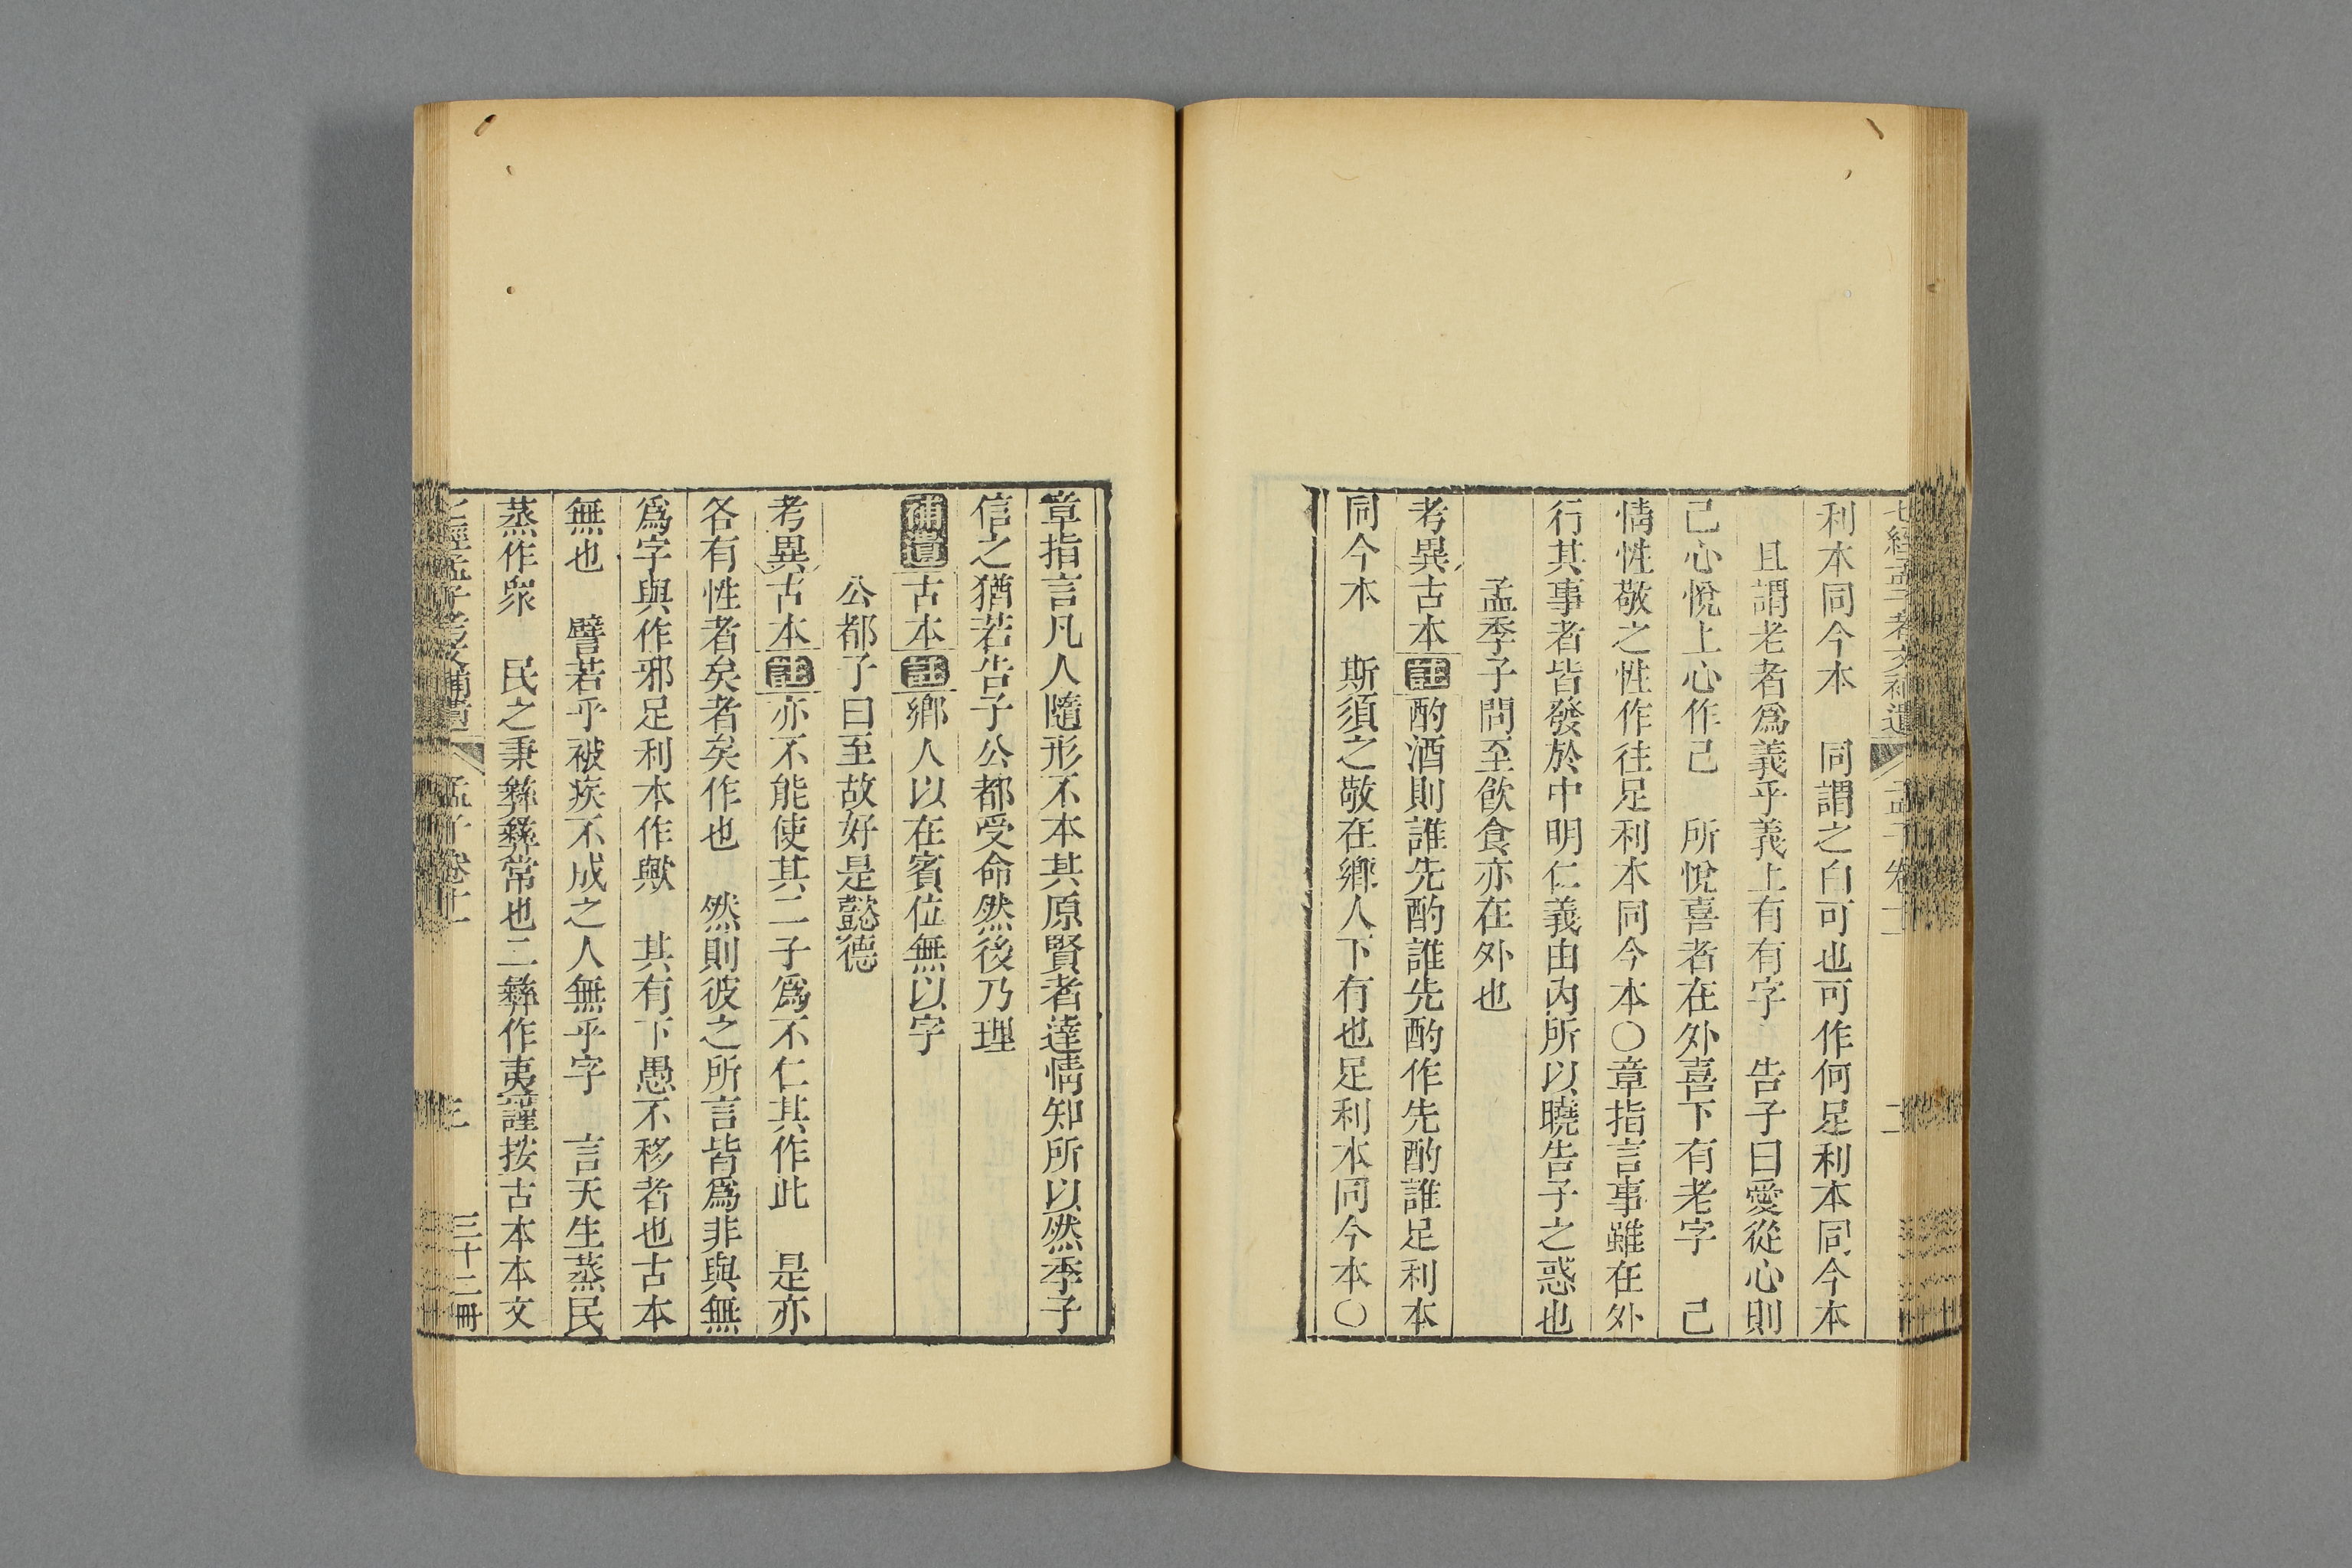 七經孟子考文補遺 孟子卷十一 二
利本同今本 同謂之白可也可作何足利本同今本
且謂老者爲義乎義上有有字 告子曰愛從心則
己心悅上心作己 所悅喜者在外喜下有老字 己
情性敬之性作往足利本同今本〇章指言事雖在外
行其事者皆發於中明仁義由內所以曉告子之惑也
孟季子問至飮食亦在外也
考異古本註酌酒則誰先酌誰先酌作先酌誰足利本
同今本 斯須之敬在鄉人下有也足利本同今本〇
章指言凡人隨形不本其原賢者達情知所以然季子
信之猶若告子公都受命然後乃理
補遺古本註鄉人以在賓位無以字
公都子曰至故好是懿德
考異古本註亦不能使其二子爲不仁其作此 是亦
各有性者矣者矣作也 然則彼之所言皆爲非與無
爲字與作邪足利本作歟 其有下愚不移者也古本
無也 譬若乎被疾不成之人無乎字 言天生蒸民
蒸作衆 民之秉彝彝常也二彝作夷謹按古本本文
七經孟子考文補遺 孟子卷十一 三 三十二冊